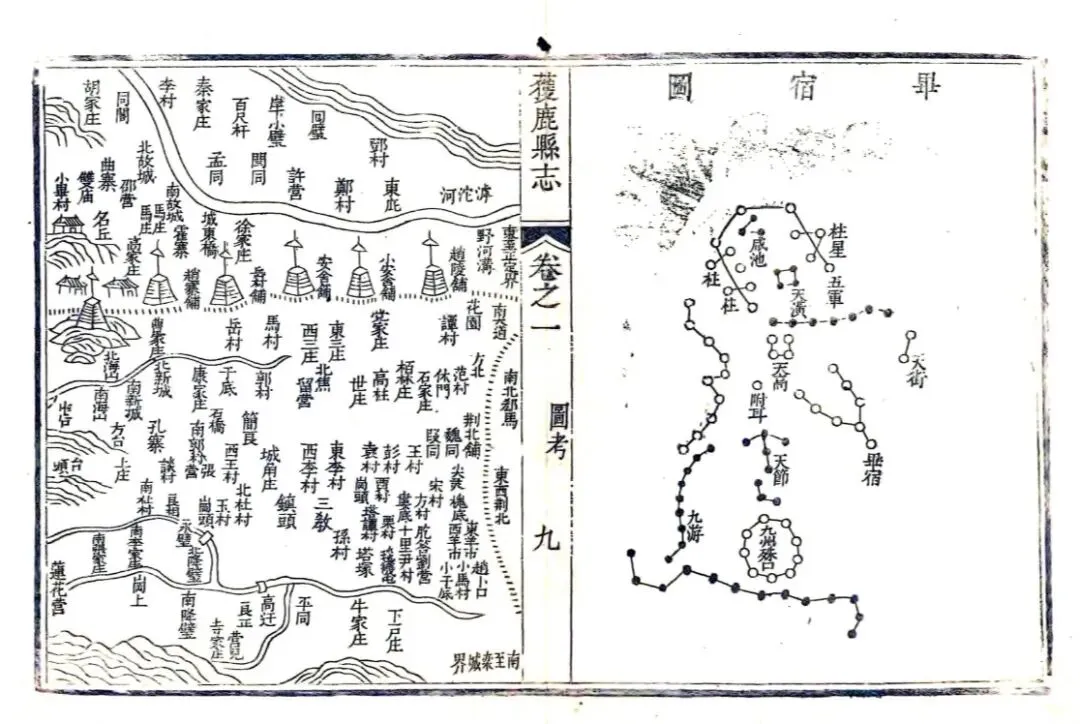 畢宿圖
柱星
五車
咸池
柱
柱
天潢
天街
天高
附耳
畢宿
天節
九游
九州殊口
獲鹿縣志
卷之一
圖考
九
胡家庄
同閣
李村
秦家庄
百尺杆
岸小璧
回璧
鄧村
曲寨
北故城
孟同
閆同
許營
鄭村
東庇
滹沱河
小畢村
雙庙
邵營
名丘
馬庄
馬庄
南故城
霍寨
城東橋
徐家庄
高家庄
趙寨舖
岳村舖
安舍舖
小安舍舖
趙陵舖
野河溝
花園
南大道
北新城
岳村
馬村
西三庄
東三庄
譚村
北海山
南海山
南新城
康家庄
于底
郭村
北焦
留營
世庄
高柱
栢林庄
石家庄
休門
范村
方北
南北郄馬
台頭
方台
上庄
孔寨
談村
石橋
張營
簡良
西王村
城角庄
西李村
東李村
袁村
彭村
王村
叚同
魏同
荆北舖
尖灵
東西荆北
南杜村
良相
崗頭
玉村
北杜村
鎮頭
三教
孫村
崗頭
塔譚村
塔塚
賈村
栗村
婁底
十里尹村
方村
宋村
槐底
西羊市
東羊市
小馬村
趙卜口
蓮花營
南張家庄
南李家庄
山崗上
永壁
北降壁
南降壁
寺家庄
良正
營兒
高迁
平同
牛家庄
下戶庄
南至欒城界